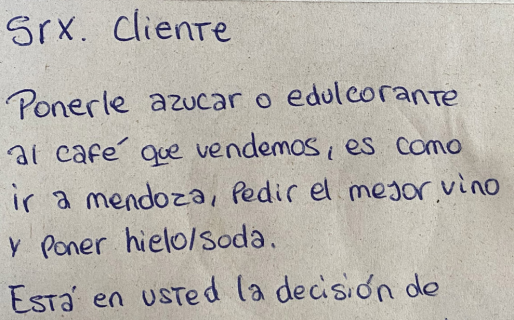 Srx. Cliente
Ponerle azucar o edulcorante
al café que vendemos, es como
ir a mendoza, Pedir el mejor vino
y Poner hielo/soda.
Está en usted la decisión de